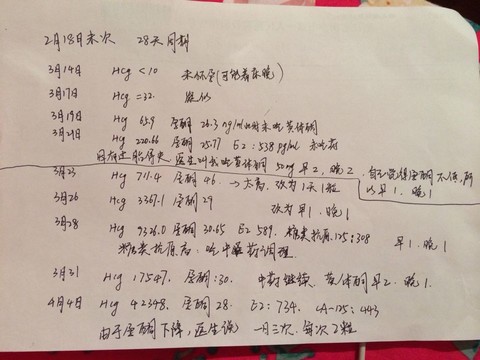 2月18日末次 28天周期
3月14日 Hcg <10 未怀孕(可能着床晚)
3月17日 Hcg =32. 疑似
3月19日 Hcg 65.9 孕酮 26.3 ng/ml 此时未吃黄体酮
3月21日 Hcg 220.66 孕酮 25.77 E2:538 pg/ml 未吃药
因有过胎停史 医生叫我吃黄体酮 50mg 早2、晚2. 自己觉得孕酮不低,所以早1.晚1
3月23 Hcg 711.4 孕酮 46 → 太高,改为1天1粒
3月26 Hcg 3367.1 孕酮 29 改为早1.晚1
3月28 Hcg 9326.0 孕酮 30.65 E2 589. 糖类抗原125:308 早1.晚1
糖类抗原高,吃中药调理.
3月31 Hcg 17547. 孕酮:30. 中药继续 黄体酮早2.晚1.
4月4日 Hcg 42348. 孕酮 28. E2:734. CA-125:443
由于孕酮下降,医生说 一日三次.每次2粒